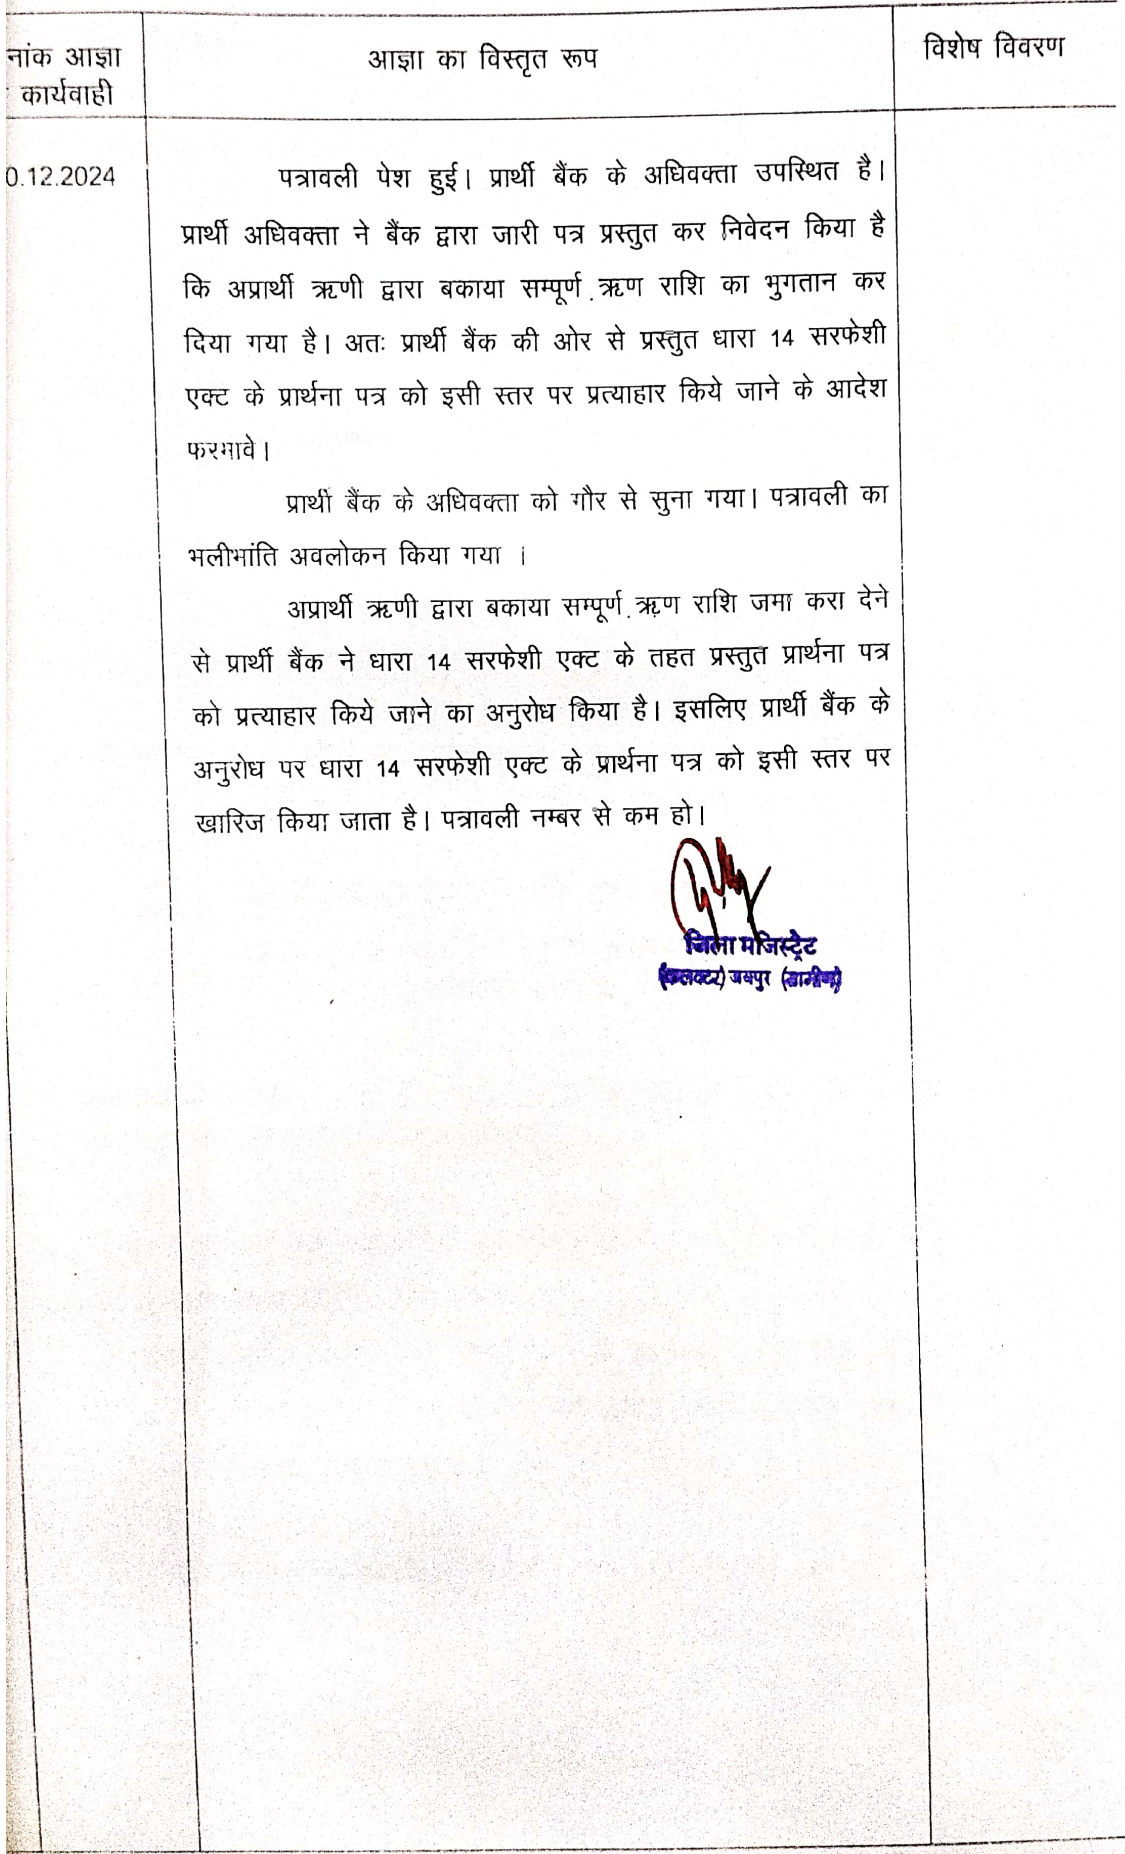 नांक आज्ञा
कार्यवाही
आज्ञा का विस्तृत रूप
विशेष विवरण
0.12.2024
पत्रावली पेश हुई। प्रार्थी बैंक के अधिवक्ता उपस्थित है।
प्रार्थी अधिवक्ता ने बैंक द्वारा जारी पत्र प्रस्तुत कर निवेदन किया है
कि अप्रार्थी ऋणी द्वारा बकाया सम्पूर्ण ऋण राशि का भुगतान कर
दिया गया है। अतः प्रार्थी बैंक की ओर से प्रस्तुत धारा 14 सरफेशी
एक्ट के प्रार्थना पत्र को इसी स्तर पर प्रत्याहार किये जाने के आदेश
फरमावे।
प्रार्थी बैंक के अधिवक्ता को गौर से सुना गया। पत्रावली का
भलीभांति अवलोकन किया गया ।
अप्रार्थी ऋणी द्वारा बकाया सम्पूर्ण ऋण राशि जमा करा देने
से प्रार्थी बैंक ने धारा 14 सरफेशी एक्ट के तहत प्रस्तुत प्रार्थना पत्र
को प्रत्याहार किये जाने का अनुरोध किया है। इसलिए प्रार्थी बैंक के
अनुरोध पर धारा 14 सरफेशी एक्ट के प्रार्थना पत्र को इसी स्तर पर
खारिज किया जाता है। पत्रावली नम्बर से कम हो।
जिला मजिस्ट्रेट
(कलक्टर) जयपुर (ग्रामीण)